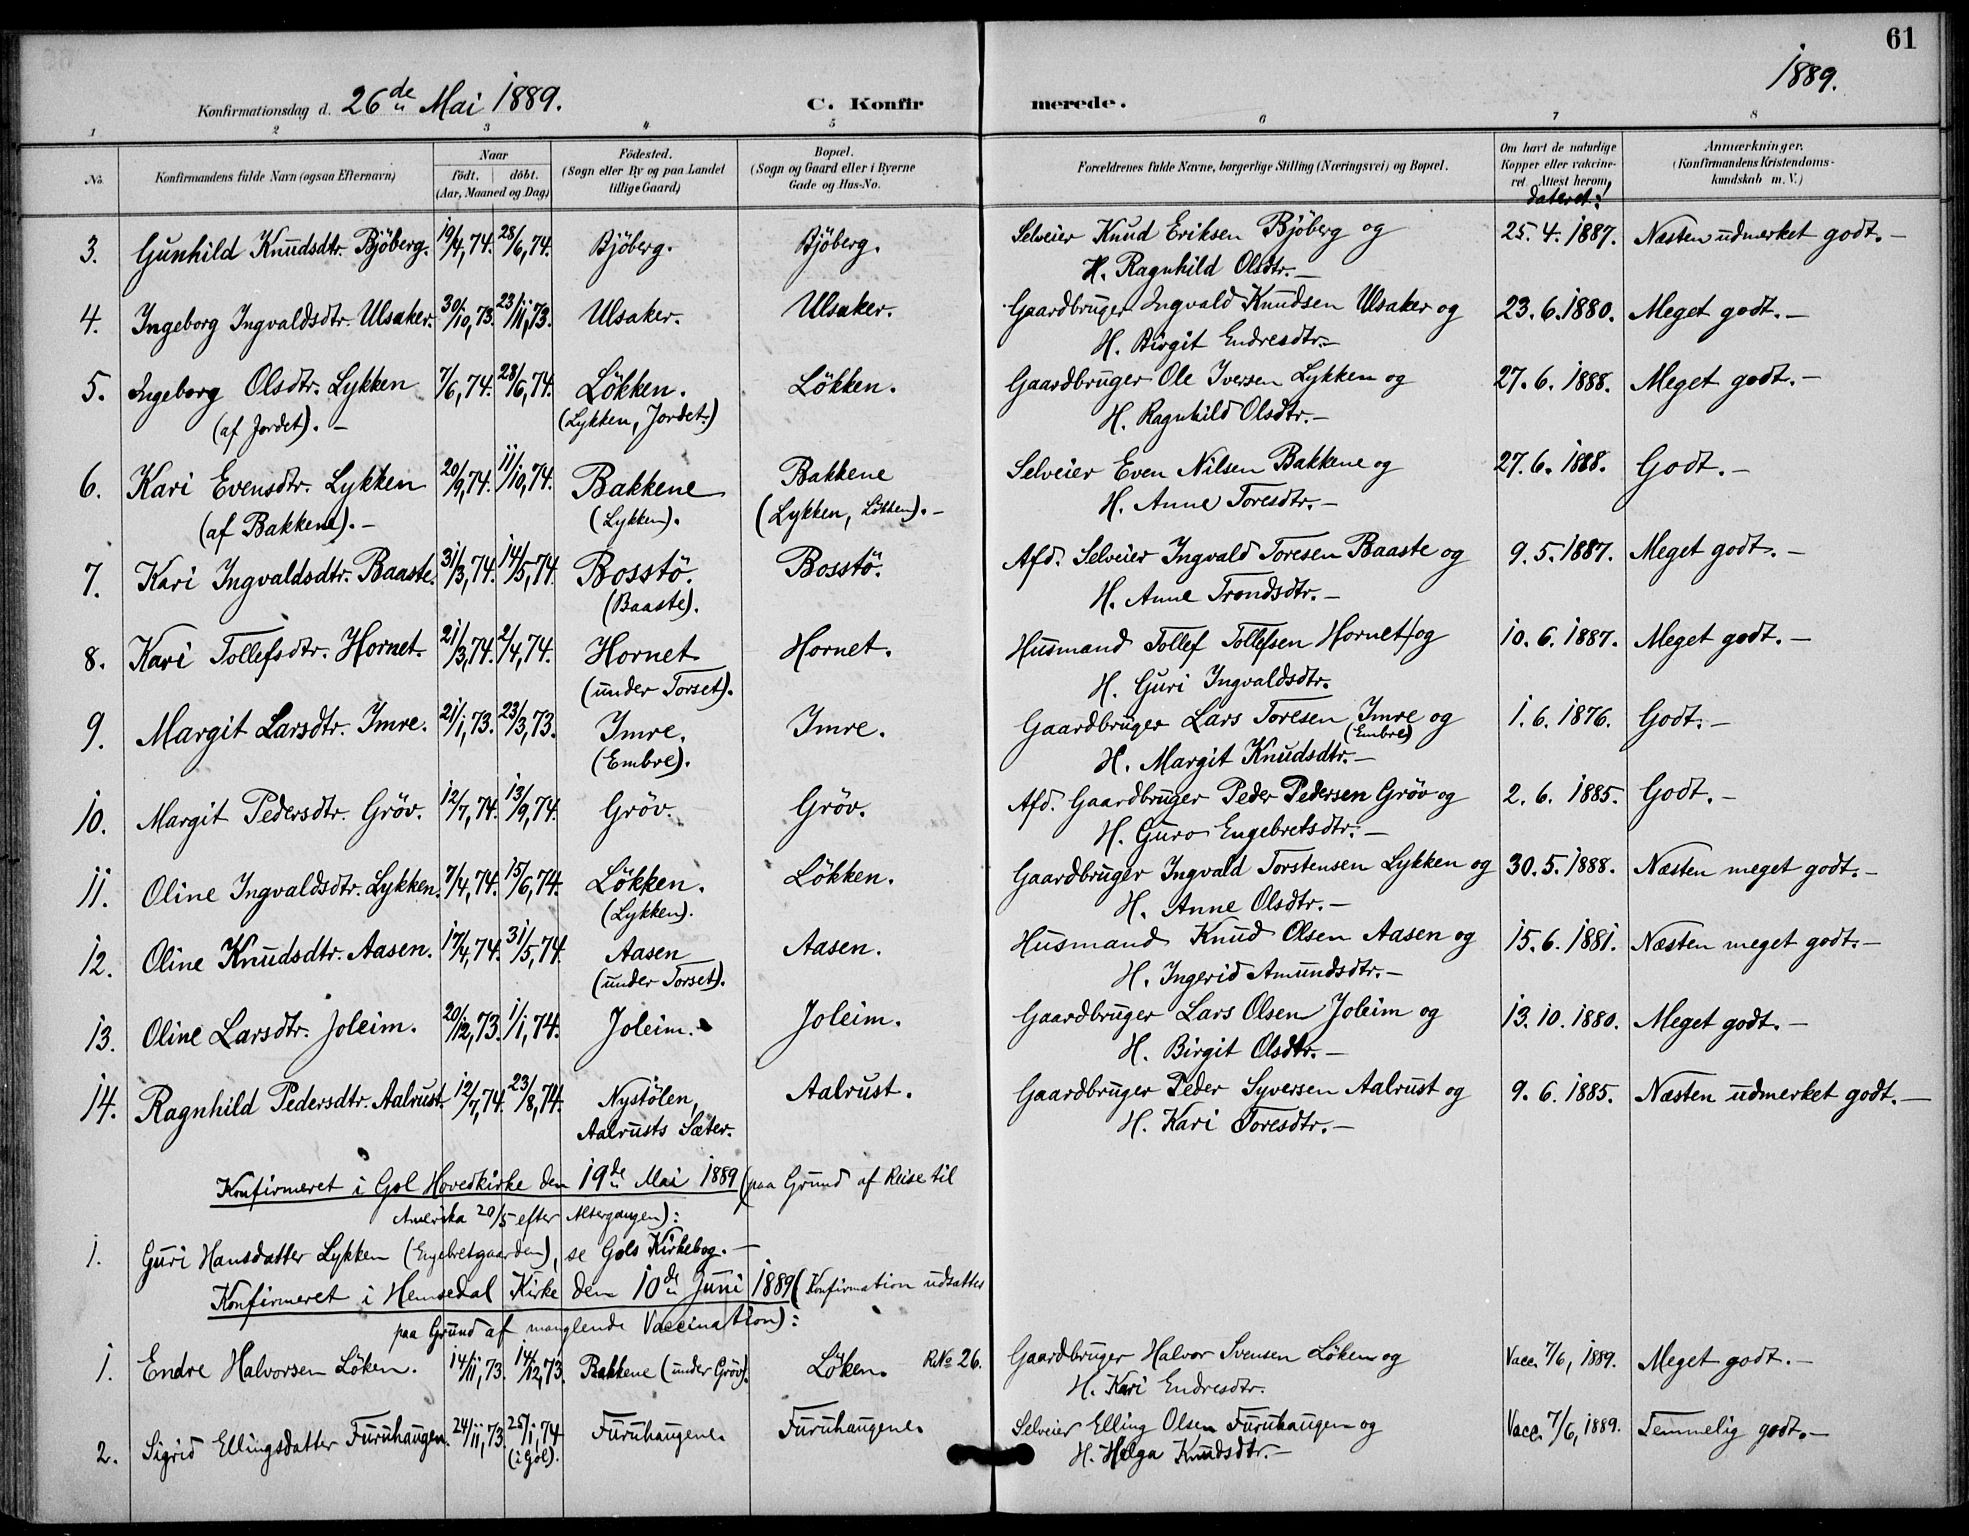 61
Konfirmationsdag d. 26de Mai 1889. C. Konfirmerede. 1889.
1 2 3 4 5 6 7 8
No. Konfirmandens fulde Navn (ogsaa Efternavn) Naar født. døbt. (Aar, Maaned og Dag) Fødested. (Sogn eller By og paa Landet tillige Gaard) Bopæl. (Sogn og Gaard eller i Byerne Gade og Hus-No. Forældrenes fulde Navne, borgerlige Stilling (Næringsvei) og Bopæl. Om havt de naturlige Kopper eller vakcineret. Attest herom, dateret: Anmærkninger. (Konfirmandens Kristendomskundskab m. V.)
3. Gunhild Knudsdtr. Bjöberg. 19/4, 74. 28/6, 74. Bjöberg. Bjöberg. Selveier Knud Eriksen Bjöberg og 25. 4. 1887. Næsten udmerket godt. –
H. Ragnhild Olsdtr. –
4. Ingeborg Ingvaldsdtr. Ulsaker. 30/10, 73. 23/11, 73. Ulsaker. Ulsaker. Gaardbruger Ingvald Knudsen Ulsaker og 23. 6. 1880. Meget godt. –
H. Birgit Endresdtr. –
5. Ingeborg Olsdtr. Lykken 7/6, 74. 28/6, 74. Lökken. Lökken. Gaardbruger Ole Iversen Lykken og 27. 6. 1888. Meget godt. –
(af Jordet). – (Lykken, Jordet.) H. Ragnhild Olsdtr. –
6. Kari Evensdtr. Lykken 20/9, 74. 11/10, 74. Bakkene Bakkene Selveier Even Nilsen Bakkene og 27. 6. 1888. Godt. –
(af Bakkene). – (Lykken). (Lykken, Lökken). – H. Anne Toresdtr. –
7. Kari Ingvaldsdtr. Baaste. 31/3, 74. 14/5, 74. Bosstö. Bosstö. Afd. Selveier Ingvald Toresen Baaste og 9. 5. 1887. Meget godt. –
(Baaste). H. Anne Trondsdtr. –
8. Kari Tollefsdtr. Hornet. 21/3, 74. 2/4, 74. Hornet Hornet. Husmand Tollef Tollefsen Hornet og 10. 6. 1887. Meget godt. –
(under Torset). H. Guri Ingvaldsdtr.
9. Margit Larsdtr. Imre. 21/1, 73. 23/3, 73. Imre. Imre. Gaardbruger Lars Toresen Imre og 1. 6. 1876. Godt. –
(Embre). (Embre) H. Margit Knudsdtr. –
10. Margit Pedersdtr. Gröv. 12/7, 74. 13/9, 74. Gröv. Gröv. Afd. Gaardbruger Peder Pedersen Gröv og 2. 6. 1885. Godt. –
H. Guro Engebretsdtr. –
11. Oline Ingvaldsdtr. Lykken. 7/4, 74. 15/6, 74. Lökken. Lökken. Gaardbruger Ingvald Torstensen Lykken og 30. 5. 1888. Næsten meget godt. –
(Lykken). H. Anne Olsdtr. –
12. Oline Knudsdtr. Aasen. 17/4, 74. 31/5, 74. Aasen Aasen. Husmand Knud Olsen Aasen og 15. 6. 1881. Næsten meget godt. –
(under Torset). H. Ingerid Amundsdtr. –
13. Oline Larsdtr. Joleim. 20/12, 73. 1/1, 74. Joleim. Joleim. Gaardbruger Lars Olsen Joleim og 13. 10. 1880. Meget godt. –
H. Birgit Olsdtr. –
14. Ragnhild Pedersdtr. Aalrust. 12/7, 74. 23/8, 74. Nystölen, Aalrust. Gaardbruger Peder Syversen Aalrust og 9. 6. 1885. Næsten udmerket godt. –
Aalrusts Sæter. H. Kari Toresdtr. –
Konfirmeret i Gol Hovedkirke den 19de Mai 1889 (paa Grund af Reise til
Amerika 20/5 efter Altergangen):
1. Guri Hansdatter Lykken (Engebretgaarden), se Gols Kirkebog. –
Konfirmeret i Hemsedal Kirke den 10de Juni 1889 (Konfirmation udsattes
paa Grund af manglende Vaccination):
1. Endre Halvorsen Löken. 14/11, 73. 14/12, 73. Bakkene (under Gröv). Löken. R.No 26. Gaardbruger Halvor Svensen Löken og Vacc. 7/6, 1889. Meget godt. –
H. Kari Endresdtr.
2. Sigrid Ellingsdatter Furuhaugen. 24/11, 73. 25/1, 74 Furuhaugene. Furuhaugene. Selveier Elling Olsen Furuhaugen og Vacc. 7/6, 1889. Temmelig godt. –
(i Gol). H. Helga Knudsdtr. –